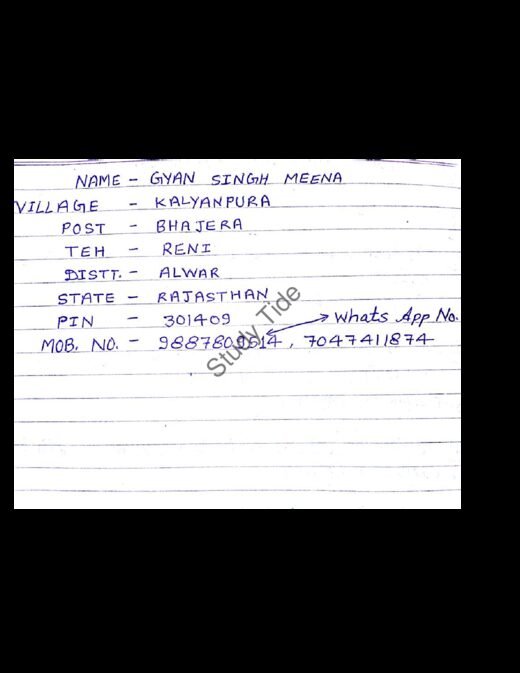 NAME - GYAN SINGH MEENA
VILLAGE - KALYANPURA
POST - BHAJERA
TEH - RENI
DISTT. - ALWAR
STATE - RAJASTHAN
PIN - 301409
Whats App No.
MOB. NO. - , 7047411874
Study Tide